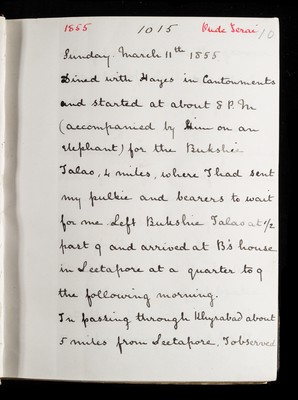 1855 1015 Oude Terai 10
Sunday. March 11th 1855
Dined with Hayes in Cantonments
and started at about 8 P.M
(accompanied by him on an
elephant) for the Bukshie
Talao, 4 miles, where I had sent
my pulkie and bearers to wait
for me. Left Bukshie Talao at 1/2
past 9 and arrived at B's house
in Seetapore at a quarter to 9
the following morning.
In passing through Khyrabad about
5 miles from Seetapore, I observed